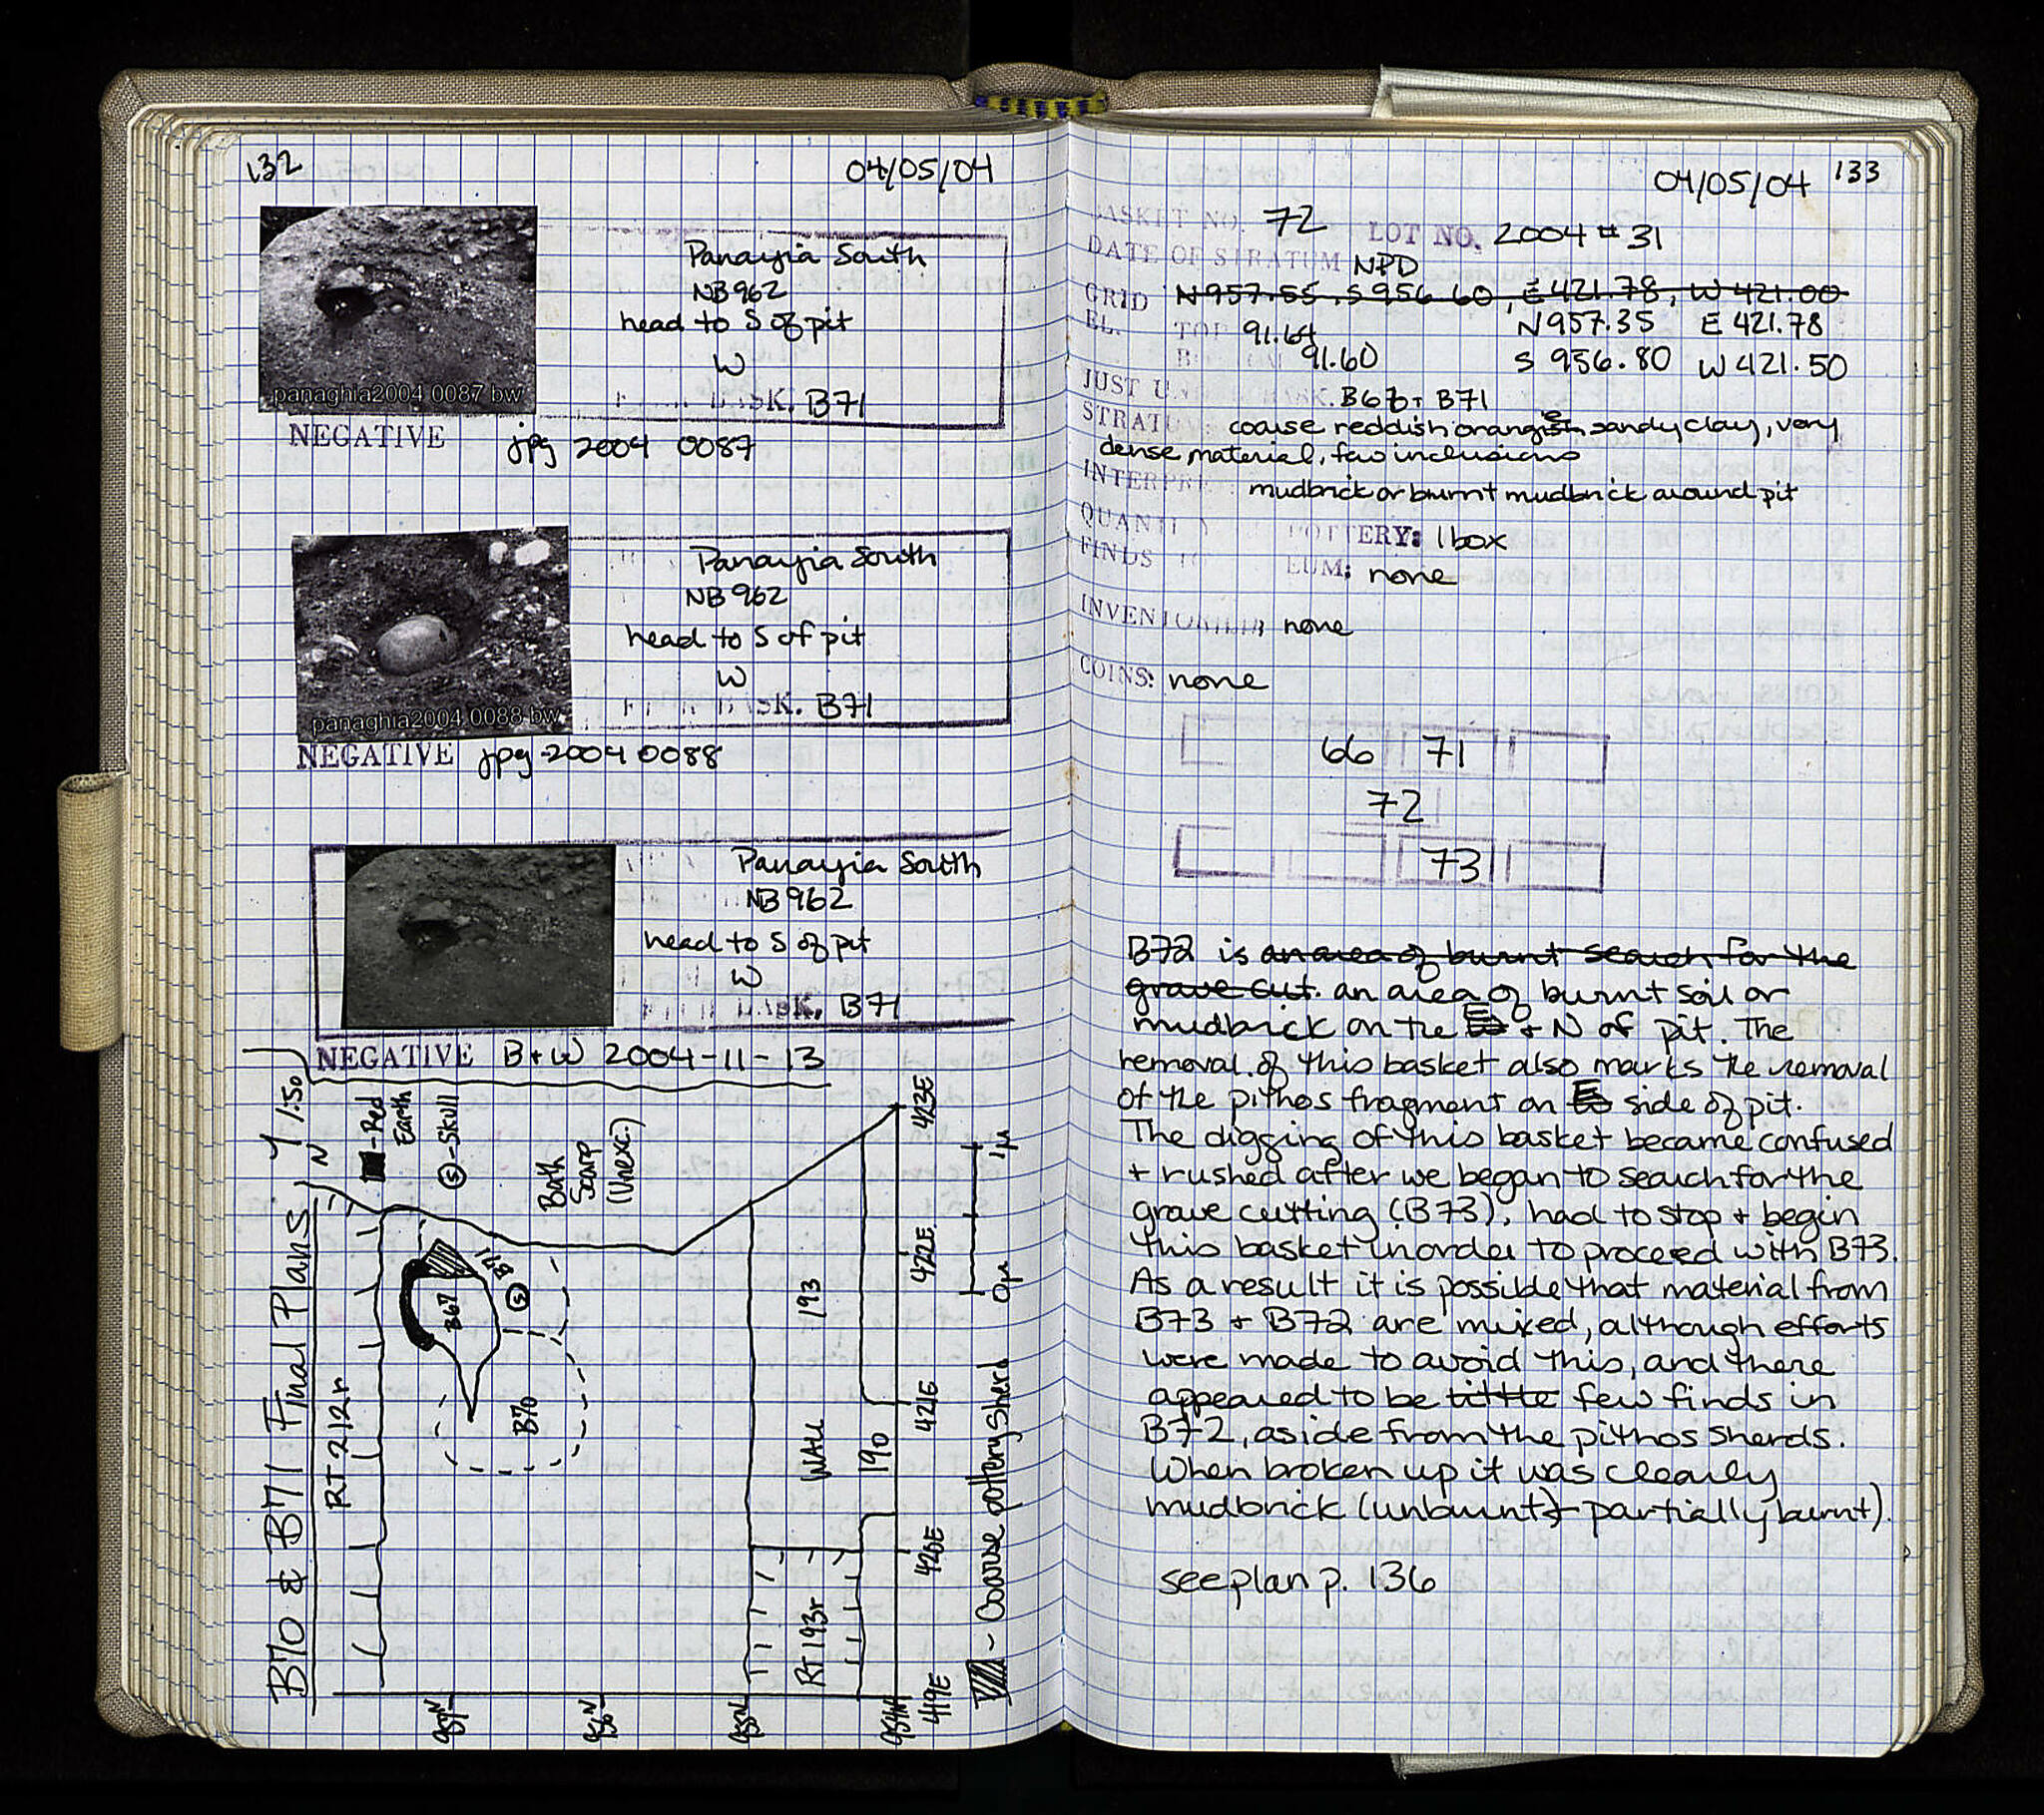 132
04/05/04
Panayia South
NB962
head to S of pit
W
BASK. B71
panaghia2004 0087 bw
NEGATIVE jpg 2004 0087
Panayia South
NB 962
head to S of pit
W
BASK. B71
panaghia2004 0088 bw
NEGATIVE jpg 2004 0088
Panayia South
NB962
head to S of pit
W
BASK. B71
NEGATIVE B+W 2004-11-13
B70 & B71 Final Plans
N 1:50
- Red Earth
Ⓢ - Skull
Bath Scarp (Unexc.)
RT 212r
B67
B71
Ⓢ
B70
193
WALL
190
RT 193r
957N
956N
955N
954N
419E
420E
421E
422E
423E
0m 1m
- Coarse pottery sherd
04/05/04 133
BASKET NO. 72 LOT NO. 2004 #31
DATE OF STRATUM NPD
GRID N957.55, S956.60, E421.78, W421.00
N957.35 E421.78
EL. TOP 91.64
BOTTOM 91.60 S 956.80 W421.50
JUST UNDER BASK. B66+ B71
STRATUM: coarse reddish orange sandy clay, very
dense material, few inclusions
INTERPRE mudbrick or burnt mudbrick around pit
QUANTITY POTTERY: 1 box
FINDS TO EUM: none
INVENTORIED: none
COINS: none
66 71
72
73
B72 is an area of burnt search for the
grave cut. an area of burnt soil or
mudbrick on the E + N of pit. The
removal of this basket also marks the removal
of the pithos fragment on E side of pit.
The digging of this basket became confused
+ rushed after we began to search for the
grave cutting (B73), had to stop + begin
this basket in order to proceed with B73.
As a result it is possible that material from
B73 + B72 are mixed, although efforts
were made to avoid this, and there
appeared to be little few finds in
B72, aside from the pithos sherds.
When broken up it was clearly
mudbrick (unburnt + partially burnt).
see plan p. 136